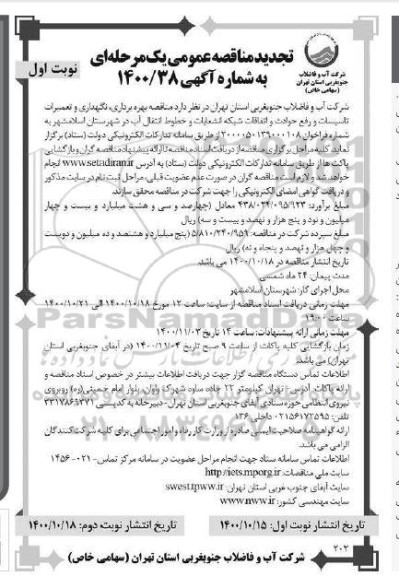 شرکت آب و فاضلاب
جنوبغربی استان تهران
(سهامی خاص)
تجدید مناقصه عمومی یک مرحله‌ای
به شماره آگهی ۱۴۰۰/۳۸
نوبت اول
شرکت آب و فاضلاب جنوبغربی استان تهران در نظر دارد مناقصه بهره برداری، نگهداری و تعمیرات
تاسیسات و رفع حوادث و اتفاقات شبکه انشعابات و خطوط انتقال آب در شهرستان اسلامشهر به
شماره فراخوان ۲۰۰۰۰۵۰۱۳۹۰۰۰۱۰۸ از طریق سامانه تدارکات الکترونیکی دولت (ستاد) برگزار
نماید. کلیه مراحل برگزاری مناقصه از دریافت اسناد مناقصه تا ارائه پیشنهاد مناقصه گران و بازگشایی
پاکت ها از طریق سامانه تدارکات الکترونیکی دولت (ستاد) به آدرس www.setadiran.ir انجام
خواهد شد و لازم است مناقصه گران در صورت عدم عضویت قبلی، مراحل ثبت نام در سایت مذکور
و دریافت گواهی امضای الکترونیکی را جهت شرکت در مناقصه محقق سازند.
مبلغ برآورد: ۴۳۸/۰۲۴/۰۹۵/۹۲۳ معادل (چهارصد و سی و هشت میلیارد و بیست و چهار
میلیون و نود و پنج هزار و نهصد و بیست و سه) ریال
مبلغ سپرده شرکت در مناقصه: ۵/۸۱۰/۲۴۰/۹۵۹ (پنج میلیارد و هشتصد و ده میلیون و دویست
و چهل هزار و نهصد و پنجاه و نه) ریال
تاریخ انتشار مناقصه در ۱۴۰۰/۱۰/۱۸ می باشد.
مدت پیمان: ۲۴ ماه شمسی
محل اجرای کار: شهرستان اسلامشهر
مهلت زمانی دریافت اسناد مناقصه از سایت: ساعت ۱۲ مورخ ۱۴۰۰/۱۰/۱۸ الی ۱۴۰۰/۱۰/۲۱
ساعت ۱۹:۰۰
مهلت زمانی ارائه پیشنهادات: ساعت ۱۴ تاریخ ۱۴۰۰/۱۱/۰۳
زمان بازگشایی کلیه پاکات از ساعت ۹ صبح تاریخ ۱۴۰۰/۱۱/۰۴ (در آبفای جنوبغربی استان
تهران) می باشد.
اطلاعات تماس دستگاه مناقصه گزار جهت دریافت اطلاعات بیشتر در خصوص اسناد مناقصه و
ارائه پاکات: آدرس- تهران کیلومتر ۲۲ جاده ساوه شهرک واوان، بلوار امام خمینی(ره) روبروی
نیروی انتظامی حوزه ستادی آبفای جنوبغربی استان تهران- دبیرخانه به کدپستی ۳۳۱۷۸۶۳۳۷۱
تلفن: ۰۲۱۵۶۱۷۲۵۹۵ داخلی ۱۳۶
ارائه گواهینامه صلاحیت ایمنی صادره از وزارت کار، رفاه و امور اجتماعی برای کلیه شرکت کنندگان
الزامی می باشد.
اطلاعات تماس سامانه ستاد جهت انجام مراحل عضویت در سامانه مرکز تماس- ۰۲۱-۱۴۵۶
سایت ملی مناقصات: http//iets.mporg.ir
سایت آبفای جنوب غربی استان تهران: swest.tpww.ir
سایت مهندسی کشور: www.nww.ir
تاریخ انتشار نوبت اول: ۱۴۰۰/۱۰/۱۵
تاریخ انتشار نوبت دوم: ۱۴۰۰/۱۰/۱۸
۲۰۲
شرکت آب و فاضلاب جنوبغربی استان تهران (سهامی خاص)
ParsNamadData